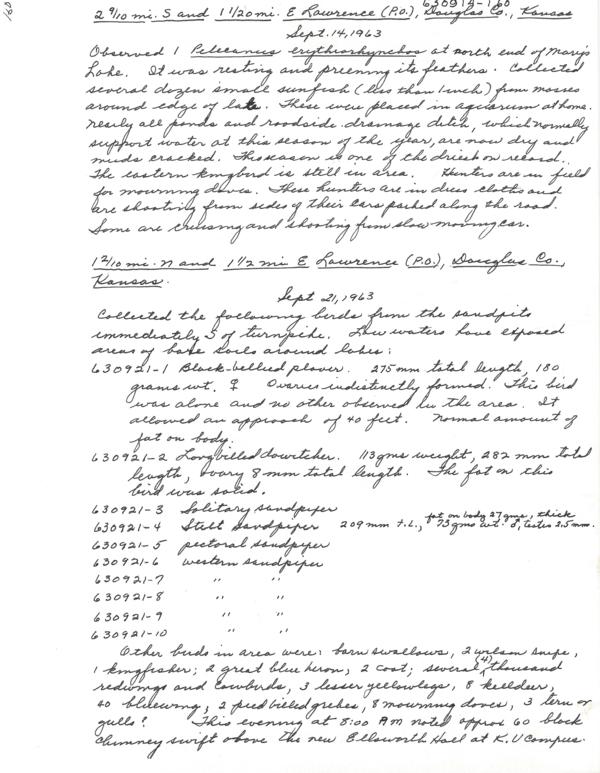 160
630914-160
2 9/10 mi. S and 1 1/20 mi. E Lawrence (P.O.), Douglas Co., Kansas
Sept. 14, 1963
Observed 1 Pelecanus erythrorhynchos at north end of Mary's
Lake. It was resting and preening its feathers. Collected
several dozen small sunfish (less than 1 inch) from mosses
around edge of lake. These were placed in aquarium at home.
Nearly all ponds and roadside drainage ditch, which normally
support water at this season of the year, are now dry and
muds cracked. This season is one of the driest on record.
The eastern kingbird is still in area. Hunters are in field
for mourning doves. These hunters are in dress cloths and
are shooting from sides of their cars parked along the road.
Some are cruising and shooting from slow moving car.
1 2/10 mi. N and 1 1/2 mi E Lawrence (P.O.), Douglas Co.,
Kansas.
Sept 21, 1963
Collected the following birds from the sandpits
immediately S of turnpike. Low waters have exposed
areas of bare soils around lakes:
630921-1 Black-bellied plover. 275 mm total length, 180
grams wt. ♀ Ovaries indistinctly formed. This bird
was alone and no other observed in the area. It
allowed an approach of 40 feet. Normal amount of
fat on body.
630921-2 Long billed dowitcher. 113 gms weight, 282 mm total
length, ovary 8 mm total length. The fat on this
bird was solid.
630921-3 Solitary sandpiper
630921-4 Stilt Sandpiper 209 mm t.l., 73 gms wt. ♂, testes 2.5 mm.
fat on body 27 gms, thick
630921-5 pectoral sandpiper
630921-6 western sandpiper
630921-7 " "
630921-8 " "
630921-9 " "
630921-10 " "
Other birds in area were: barn swallows, 2 wilson snipe,
1 kingfisher; 2 great blue heron, 2 coot; several (4) thousand
redwings and cowbirds, 3 lesser yellowlegs, 8 killdeer,
40 bluewing, 2 pied billed grebes, 8 mourning doves, 3 tern or
gulls? This evening at 8:00 PM noted approx 60 black
chimney swift above the new Ellsworth Hall at K.U Campus.